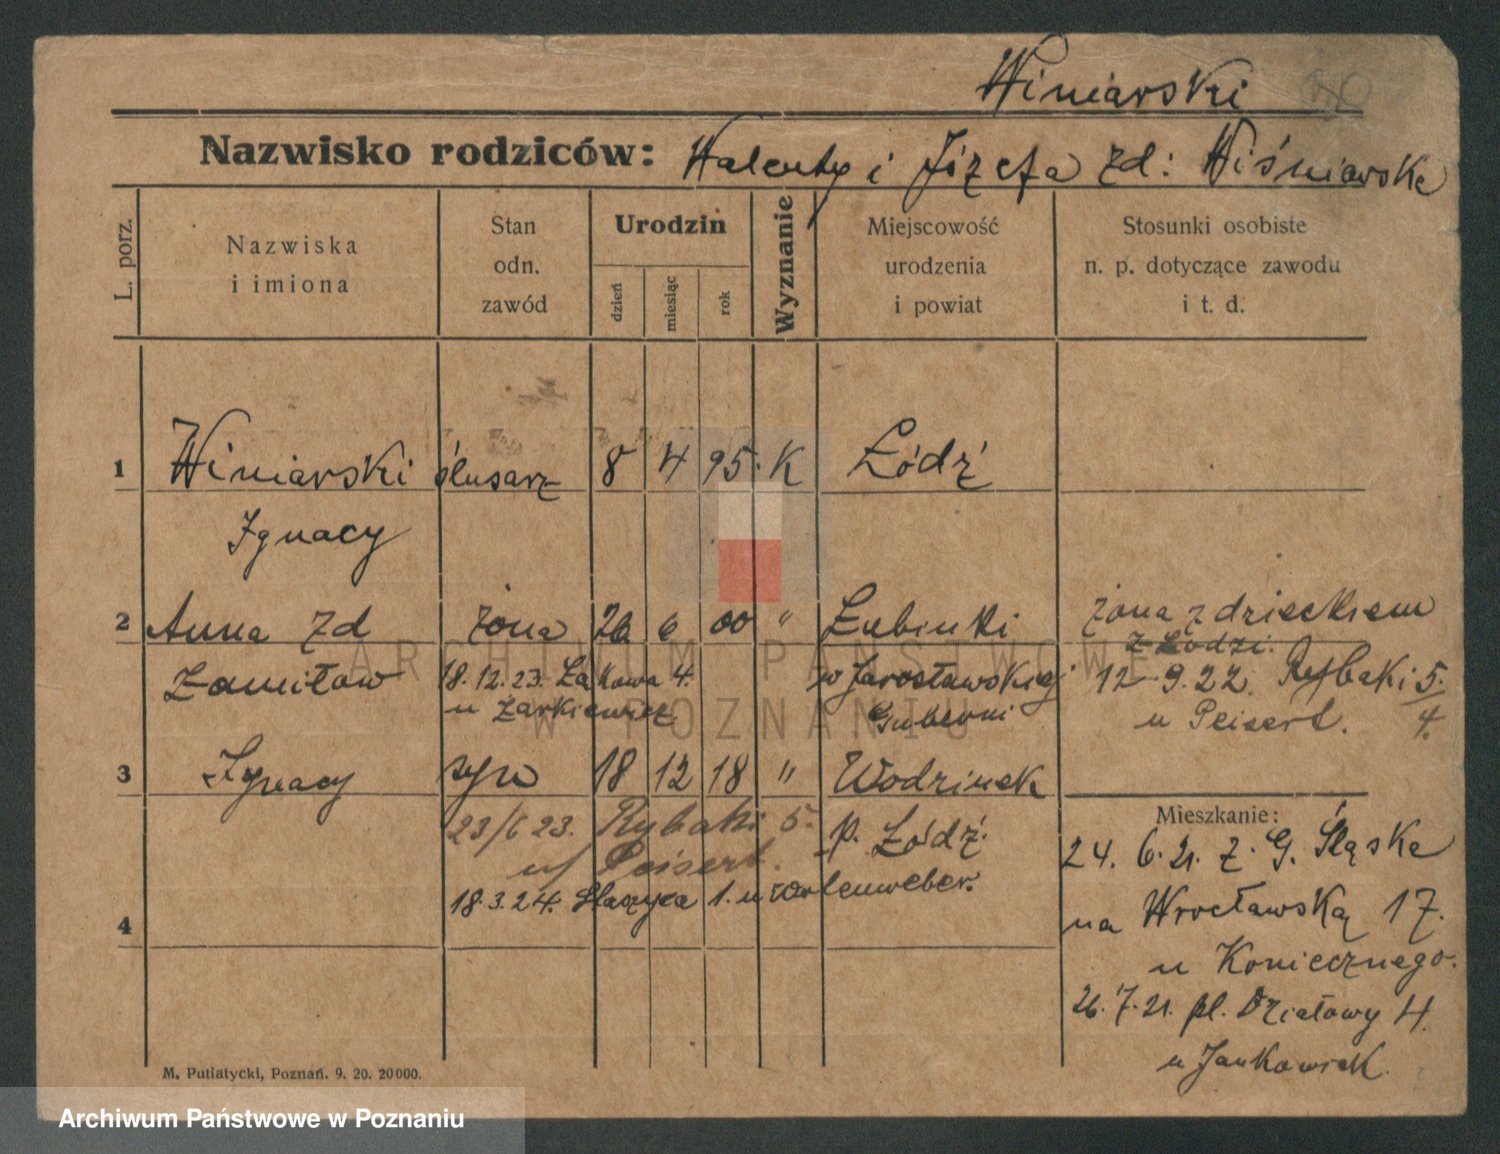 Winiarski
Nazwisko rodziców: Walenty i Józefa zd: Wiśniarska
L. porz.
Nazwiska
i imiona
Stan
odn.
zawód
Urodzin
dzień
miesiąc
rok
Wyznanie
Miejscowość
urodzenia
i powiat
Stosunki osobiste
n. p. dotyczące zawodu
i t. d.
1 Winiarski ślusarz 8 4 95. K Łódź
Ignacy
2 Anna zd żona 26 6 00 " Łubinki żona z dzieckiem
z Łodzi.
18.12.23. Łąkowa 4. w Jarosławskiej 12 9.22. Rybaki 5/4.
u Zarkiewicz Guberni u Peisert.
3 Ignacy syn 18 12 18 " Wodzinek
23/6 23. Rybaki 5. p. Łódź.
u Peisert.
18.3.24. Staszyca 1. u
4
Mieszkanie:
24. 6. 21. z. G. Śląska
na Wrocławską 17.
u Koniecznego.
26. 7. 21. pl. Działowy 4.
u Jankowiak.
M. Putiatycki, Poznań. 9. 20. 20000.
ARCHIWUM PAŃSTWOWE
W POZNANIU
Archiwum Państwowe w Poznaniu